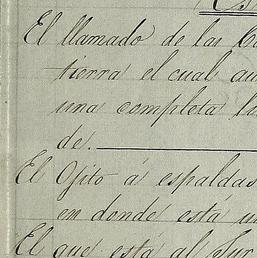 El llamado de las
tierra el cual
una completa
de.
El Ojito á espaldas
en donde está
El que está al Sur